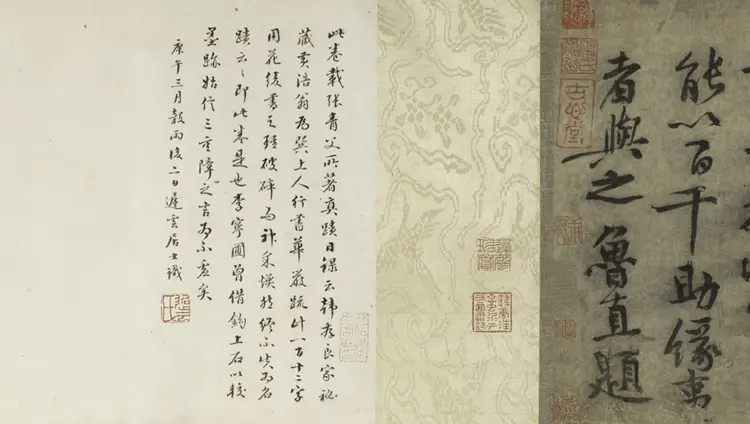 能以百千助緣書
者與之 魯直題
此卷載張青父所著真蹟日錄云韓存良家祕
藏黃涪翁為巽上人行書華嚴疏計一百十二字
用花綾書之頗破碎而神采煥然終不失為名
蹟云〻即此卷是也李寧國曾借鉤上石以較
墨跡始信三重障之言為不虛矣
庚午三月穀雨後二日遲雲居士識